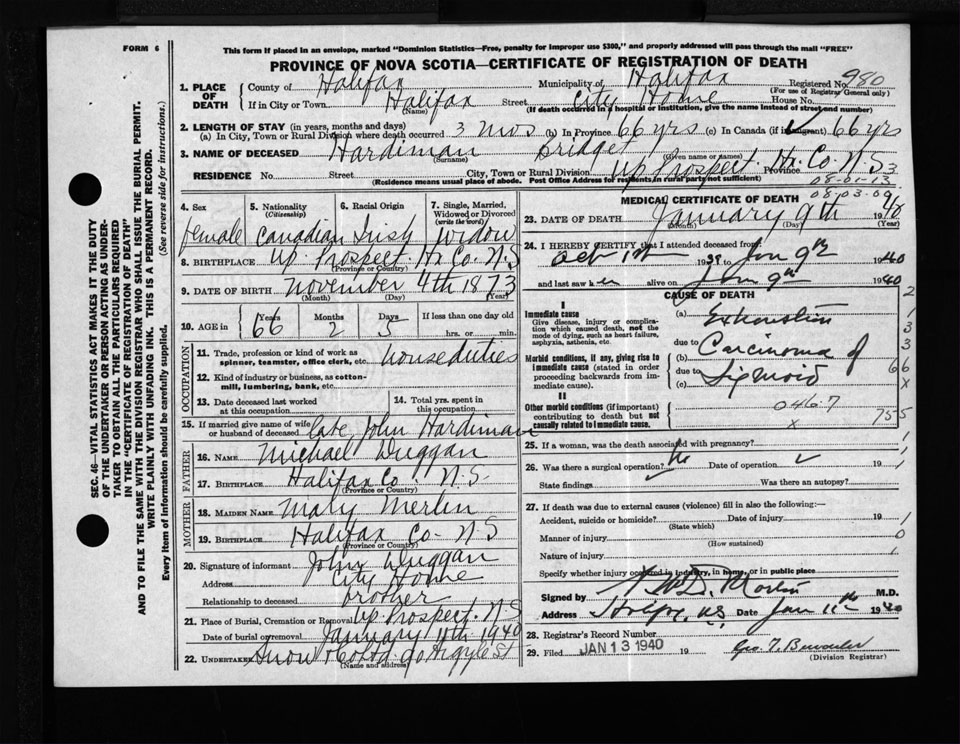 FORM 6
This form if placed in an envelope, marked "Dominion Statistics—Free, penalty for improper use $300," and properly addressed will pass through the mail "FREE"
PROVINCE OF NOVA SCOTIA—CERTIFICATE OF REGISTRATION OF DEATH
SEC. 46—VITAL STATISTICS ACT MAKES IT THE DUTY
OF THE UNDERTAKER OR PERSON ACTING AS UNDER-
TAKER TO OBTAIN ALL THE PARTICULARS REQUIRED
IN THE "CERTIFICATE OF REGISTRATION OF DEATH"
AND TO FILE THE SAME WITH THE DIVISION REGISTRAR WHO SHALL ISSUE THE BURIAL PERMIT.
WRITE PLAINLY WITH UNFADING INK. THIS IS A PERMANENT RECORD.
Every item of information should be carefully supplied. (See reverse side for instructions.)
1. PLACE OF DEATH
County of Halifax Municipality of Halifax Registered No. 980
(For use of Registrar General only)
If in City or Town Halifax Street City Home House No.
(Name) (If death occurred in a hospital or institution, give the name instead of street and number)
2. LENGTH OF STAY (in years, months and days)
(a) In City, Town or Rural Division where death occurred 3 mos (b) In Province 66 yrs (c) In Canada (if immigrant) 66 yrs
3. NAME OF DECEASED Hardiman Bridget
(Surname) (Given name or names)
RESIDENCE No. Street City, Town or Rural Division Up Prospect. Hx. Co. N.S Province
(Residence means usual place of abode. Post Office Address for residents in rural parts not sufficient)
08-01-13
08-03-09
4. Sex 5. Nationality 6. Racial Origin 7. Single, Married, Widowed or Divorced
(Citizenship) (write the word)
female Canadian Irish widow
8. BIRTHPLACE Up. Prospect. Hx Co. N.S
(Province or Country)
9. DATE OF BIRTH November 4th 1873
(Month) (Day)
10. AGE in Years Months Days If less than one day old
66 2 5 hrs. or min.
OCCUPATION
11. Trade, profession or kind of work as spinner, teamster, office clerk, etc. House duties
12. Kind of industry or business, as cotton-mill, lumbering, bank, etc.
13. Date deceased last worked at this occupation
14. Total yrs. spent in this occupation
15. If married give name of wife or husband of deceased late John Hardiman
FATHER
16. NAME Michael Duggan
17. BIRTHPLACE Halifax Co. N.S.
(Province or Country)
MOTHER
18. MAIDEN NAME Mary Merlin
19. BIRTHPLACE Halifax Co- N.S
(Province or Country)
20. Signature of informant John Duggan
Address City Home
Relationship to deceased brother
21. Place of Burial, Cremation or Removal Up. Prospect. N.S
Date of burial or removal January 11th 1940
22. UNDERTAKER Snow & Co Ltd. 90 Argyle St
(Name and address)
MEDICAL CERTIFICATE OF DEATH
23. DATE OF DEATH January 9th 1940
(Month) (Day) (Year)
24. I HEREBY CERTIFY that I attended deceased from:
Oct 1st 1939 Jan 9th 1940
and last saw her alive on Jan 9th 1940
CAUSE OF DEATH
I
Immediate cause
Give disease, injury or complication which caused death, not the mode of dying, such as heart failure, asphyxia, asthenia, etc.
(a) Exhaustion
due to
Morbid conditions, if any, giving rise to immediate cause (stated in order proceeding backwards from immediate cause).
(b) Carcinoma of
due to
(c) Sigmoid
II
Other morbid conditions (if important) contributing to death but not causally related to immediate cause.
046.7
x
755
25. If a woman, was the death associated with pregnancy?
26. Was there a surgical operation? No Date of operation 19
State findings Was there an autopsy?
27. If death was due to external causes (violence) fill in also the following:—
Accident, suicide or homicide? Date of injury 19
(State which)
Manner of injury
(How sustained)
Nature of injury
Specify whether injury occurred in industry, in home, or in public place
Signed by M.D.
Address Halifax, N.S. Date Jan 11th 1940
28. Registrar's Record Number
29. Filed JAN 13 1940 19
(Division Registrar)